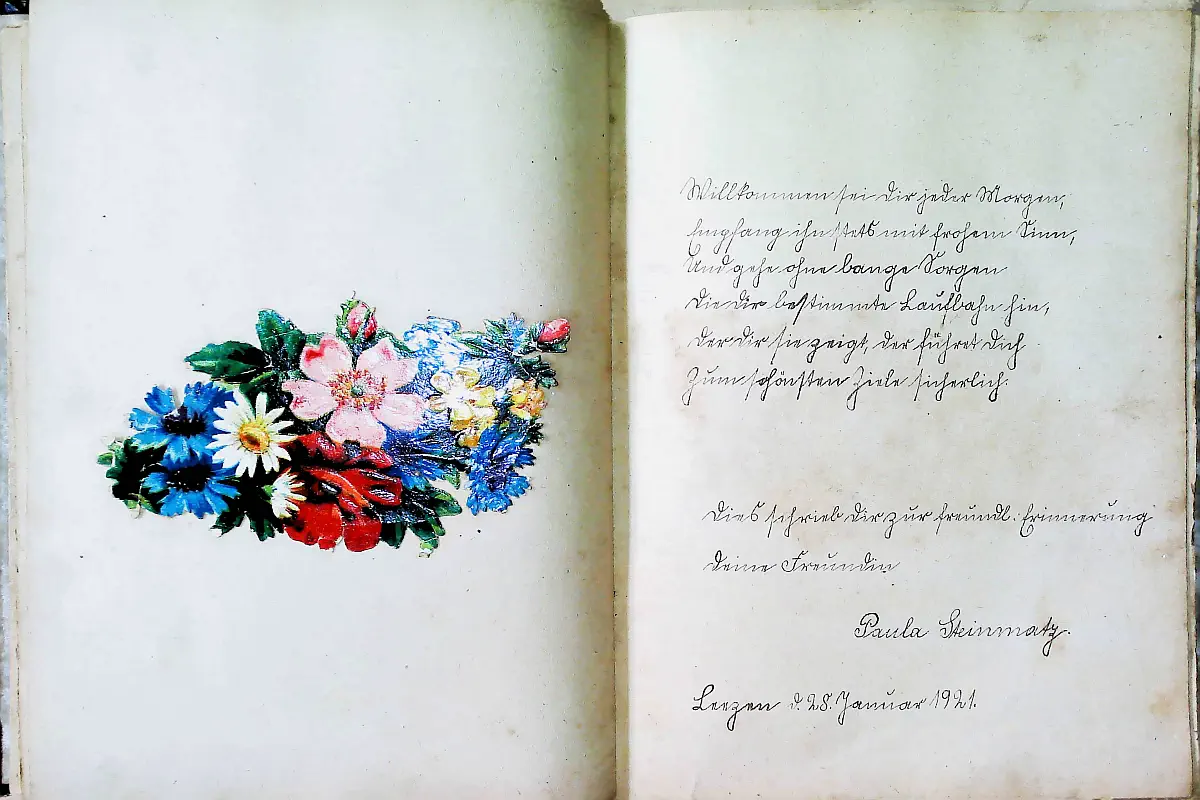 Willkommen sei dir jeder Morgen,
Empfang ihn stets mit frohem Sinn,
Und gehe ohne bange Sorgen
Die dir bestimmte Laufbahn hin,
Der dir sie zeigt, der führet dich
Zum schönsten Ziele sicherlich.
Dies schrieb dir zur freundl. Erinnerung
deine Freundin
Paula Steinmatz.
Leezen d. 28. Januar 1921.